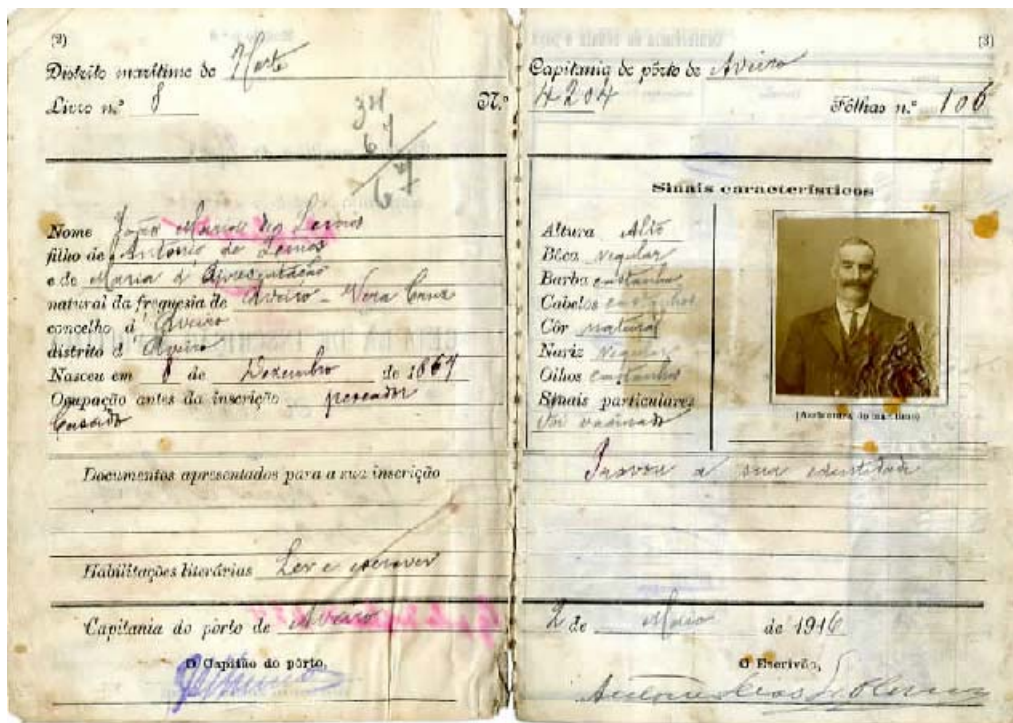 (2)
Distrito marítimo do Norte
Livro n.º 8 N.º
34
61
67
Nome João Maria de Lemos
filho de António de Lemos
e de Maria d'Apresentação
natural da freguesia de Aveiro - Vera Cruz
concelho d'Aveiro
distrito d'Aveiro
Nasceu em 8 de Dezembro de 1867
Ocupação antes da inscrição pescador
Casado
Documentos apresentados para a sua inscrição
Habilitações literárias Ler e escrever
Capitania do pôrto de Aveiro
O Capitão do pôrto,
(3)
Capitania do pôrto de Aveiro
4204 Fôlhas n.º 106
Sinais característicos
Altura Alto
Bôca regular
Barba castanha
Cabelos castanhos
Côr natural
Nariz regular
Olhos castanhos
Sinais particulares
Foi vacinado
(Assinatura do marítimo)
Provou a sua identidade
2 de Maio de 1916
O Escrivão,